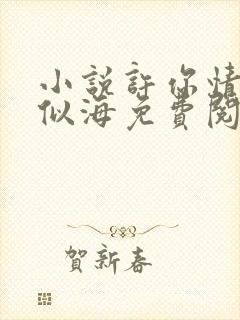 小説許你情
似海免費閱
賀新春